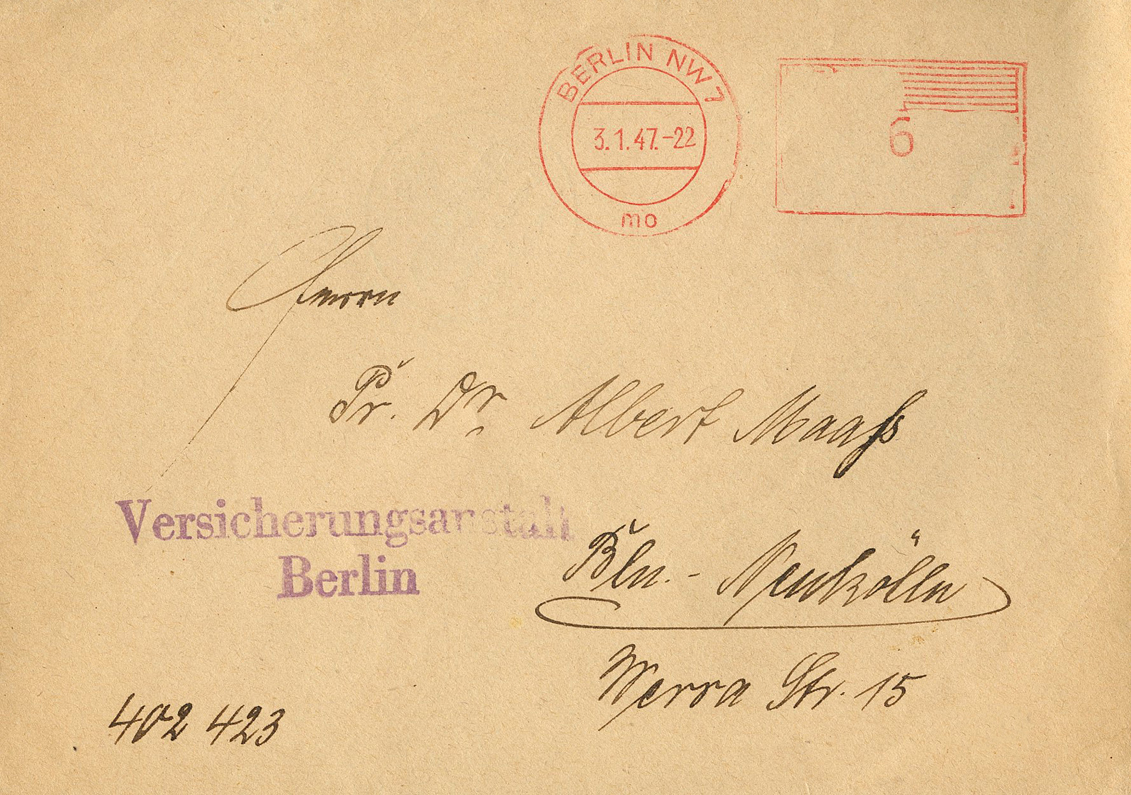 BERLIN NW 7
3.1.47.-22
mo
6
Herrn
Pr. Dr. Albert Maaß
Versicherungsanstalt
Berlin
Bln.- Neukölln
Werra Str. 15
402 423